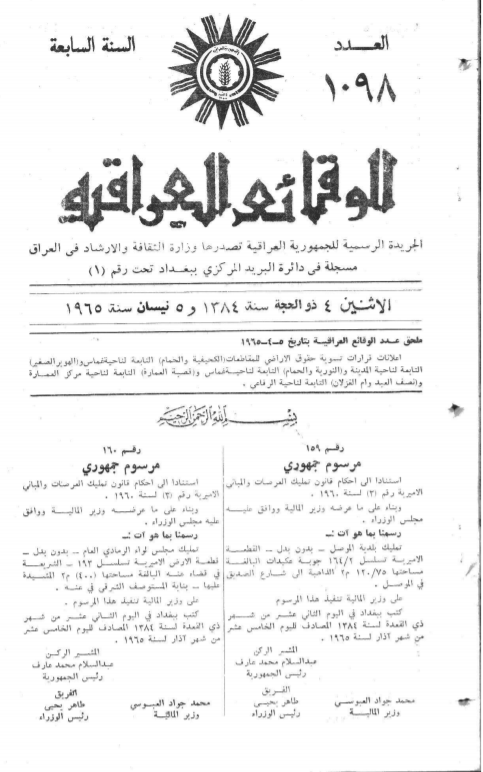 العدد
١٠٩٨
السنة السابعة
الوقائع العراقية
الجريدة الرسمية للجمهورية العراقية تصدرها وزارة الثقافة والارشاد في العراق
مسجلة في دائرة البريد المركزي ببغداد تحت رقم (١)
الاثنين ٤ ذو الحجة سنة ١٣٨٤ و ٥ نيسان سنة ١٩٦٥
ملحق عدد الوقائع العراقية بتاريخ ٥-٤-١٩٦٥
اعلانات قرارات تسوية حقوق الاراضي للمقاطعات (الكحيفية والحمام) التابعة لناحية غماس و(الهوير الصغير)
التابعة لناحية المدينة و(النورية والحمام) التابعة لناحية غماس و(قصبة العمارة) التابعة لناحية مركز العمارة
و(نصف العبد وام الغزلان) التابعة لناحية الرفاعي .
بسم الله الرحمن الرحيم
رقم ١٥٩
مرسوم جمهوري
استنادا الى احكام قانون تمليك العرصات والمباني
الاميرية رقم (٣) لسنة ١٩٦٠ .
وبناء على ما عرضه وزير المالية ووافق عليه
مجلس الوزراء .
رسمنا بما هو آت :ـ
تمليك بلدية الموصل – بدون بدل – القطعة
الاميرية تسلسل ١٦٤/٢ جوبة عكيدات البالغة
مساحتها ١٢٠/٧٥ م٢ الذاهبة الى شارع الصديق
في الموصل .
على وزير المالية تنفيذ هذا المرسوم
كتب ببغداد في اليوم الثاني عشر من شهر
ذي القعدة لسنة ١٣٨٤ المصادف لليوم الخامس عشر
من شهر آذار لسنة ١٩٦٥ .
المشير الركن
عبدالسلام محمد عارف
رئيس الجمهورية
الفريق
محمد جواد العبوسي طاهر يحيى
وزير المالية رئيس الوزراء
رقم ١٦٠
مرسوم جمهوري
استنادا الى احكام قانون تمليك العرصات والمباني
الاميرية رقم (٣) لسنة ١٩٦٠ .
وبناء على ما عرضه وزير المالية ووافق
عليه مجلس الوزراء .
رسمنا بما هو آت :ـ
تمليك مجلس لواء الرمادي العام – بدون بدل –
قطعة الارض الاميرية تسلسل ١٩٣ – الشريعة
في قضاء عنه البالغة مساحتها (٤٠٠) م٢ المشيدة
عليها – بناية المستوصف الشرقي في عنه .
على وزير المالية تنفيذ هذا المرسوم .
كتب ببغداد في اليوم الثاني عشر من شهر
ذي القعدة لسنة ١٣٨٤ المصادف لليوم الخامس عشر
من شهر آذار لسنة ١٩٦٥ .
المشير الركن
عبدالسلام محمد عارف
رئيس الجمهورية
الفريق
محمد جواد العبوسي طاهر يحيى
وزير المالية رئيس الوزراء